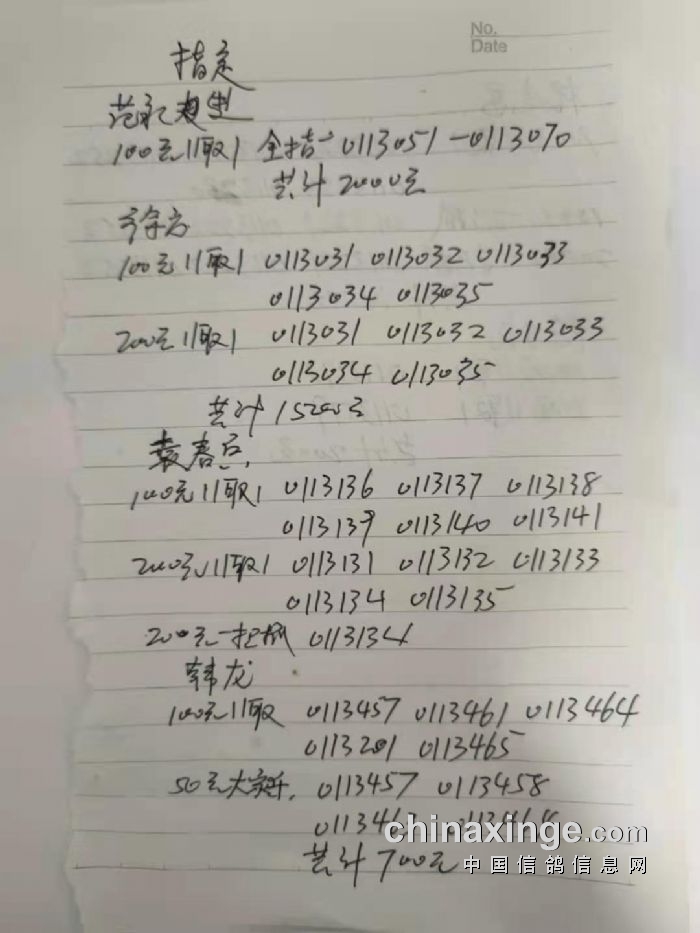 No.
Date
指定
100元11取1 全指 0113051-0113070
共计2000元
100元11取1 0113031 0113032 0113033
0113034 0113035
200元11取1 0113031 0113032 0113033
0113034 0113035
共计1500元
袁春兵
100元11取1 0113136 0113137 0113138
0113139 0113140 0113141
200元11取1 0113131 0113132 0113133
0113134 0113135
200元一把抓 0113134
韩龙
100元11取 0113457 0113461 0113464
0113201 0113465
50元大家乐 0113457 0113458
共计700元
chinaxinge.com
中国信鸽信息网